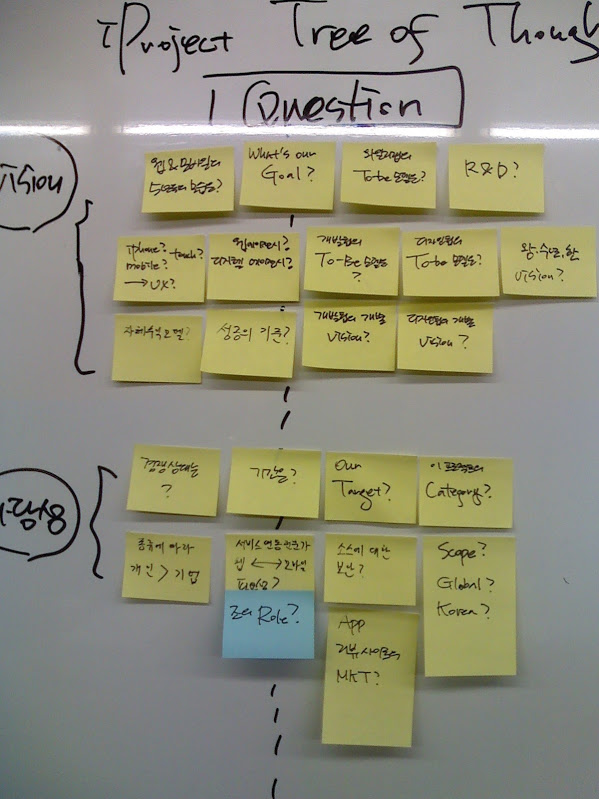 iProject Tree of Though
1 Question
Vision
웹&모바일의
5년뒤의 모습은?
What's our
Goal?
To-be 모습은?
R&D?
iphone? touch?
mobile?
→ UX?
웹에이전시?
디지털 에이전시?
개발팀의
To-Be 모습은
?
디자인팀의
To be 모습은?
왕.수.년.한
vision?
자체수익모델?
성공의 기준?
개발팀의 개발
Vision?
디자인팀의 개발
Vision?
경쟁상대는
?
기간은?
Our
Target?
이 프로젝트의
Category?
종류에 따라
개인 > 기업
서비스 연동
웹 ↔ 모바일
필요성?
소스에 대한
보안?
Scope?
Global?
Korea?
Role?
App
리뷰사이트의
MKT?